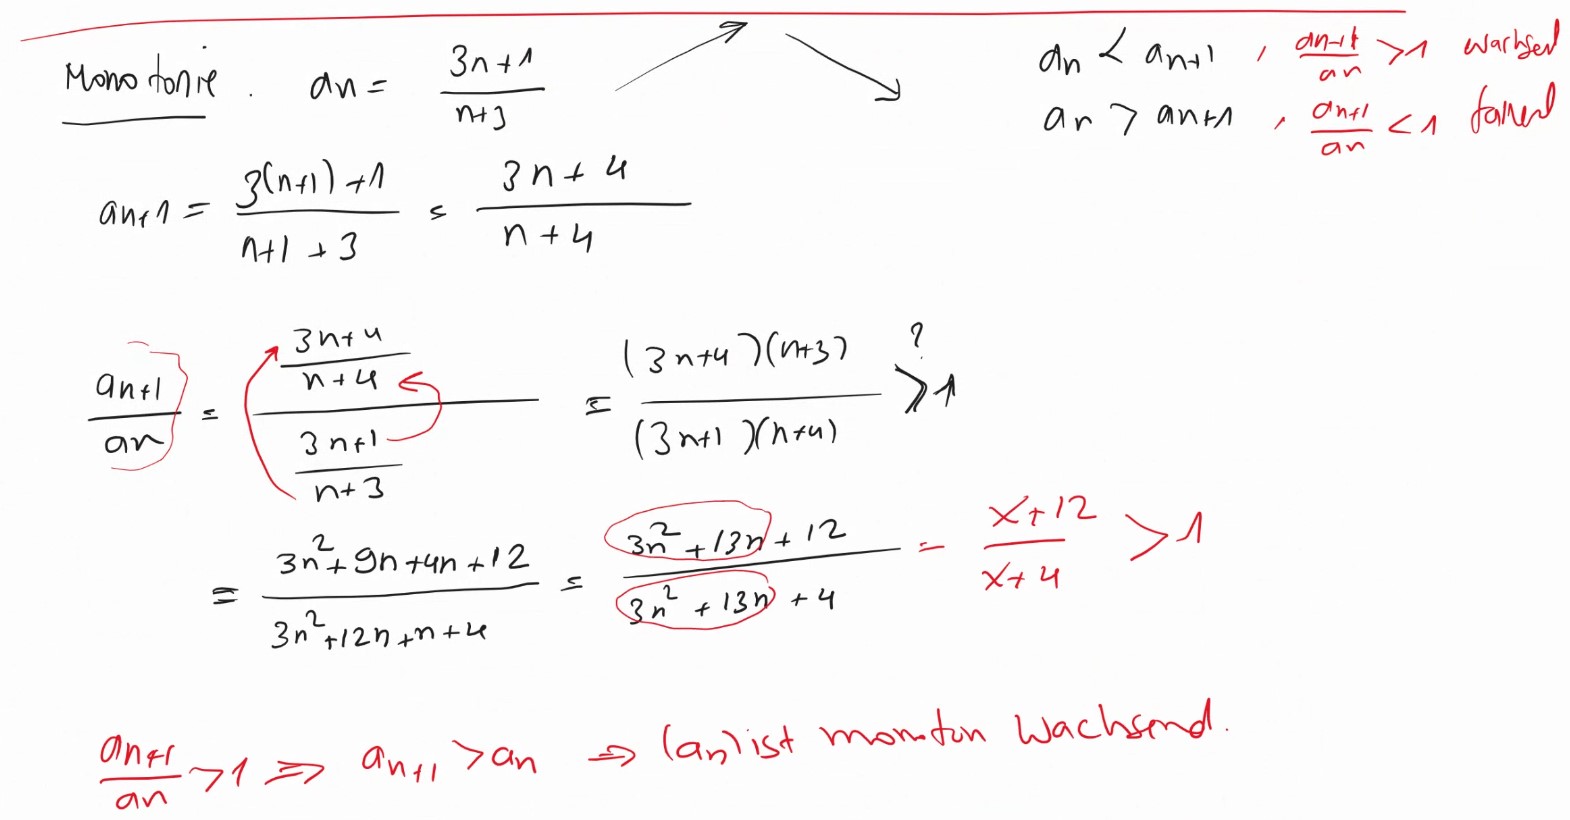 Monotonie. an = (3n+1)/(n+3)
an < an+1 , an+1/an > 1 wachsend
an > an+1 , an+1/an < 1 fallend
an+1 = (3(n+1)+1)/(n+1+3) = (3n+4)/(n+4)
an+1/an = ((3n+4)/(n+4))/((3n+1)/(n+3)) = ((3n+4)(n+3))/((3n+1)(n+4)) >? 1
= (3n²+9n+4n+12)/(3n²+12n+n+4) = (3n²+13n+12)/(3n²+13n+4) = (x+12)/(x+4) > 1
an+1/an > 1 ⇒ an+1 > an ⇒ (an) ist monoton wachsend.